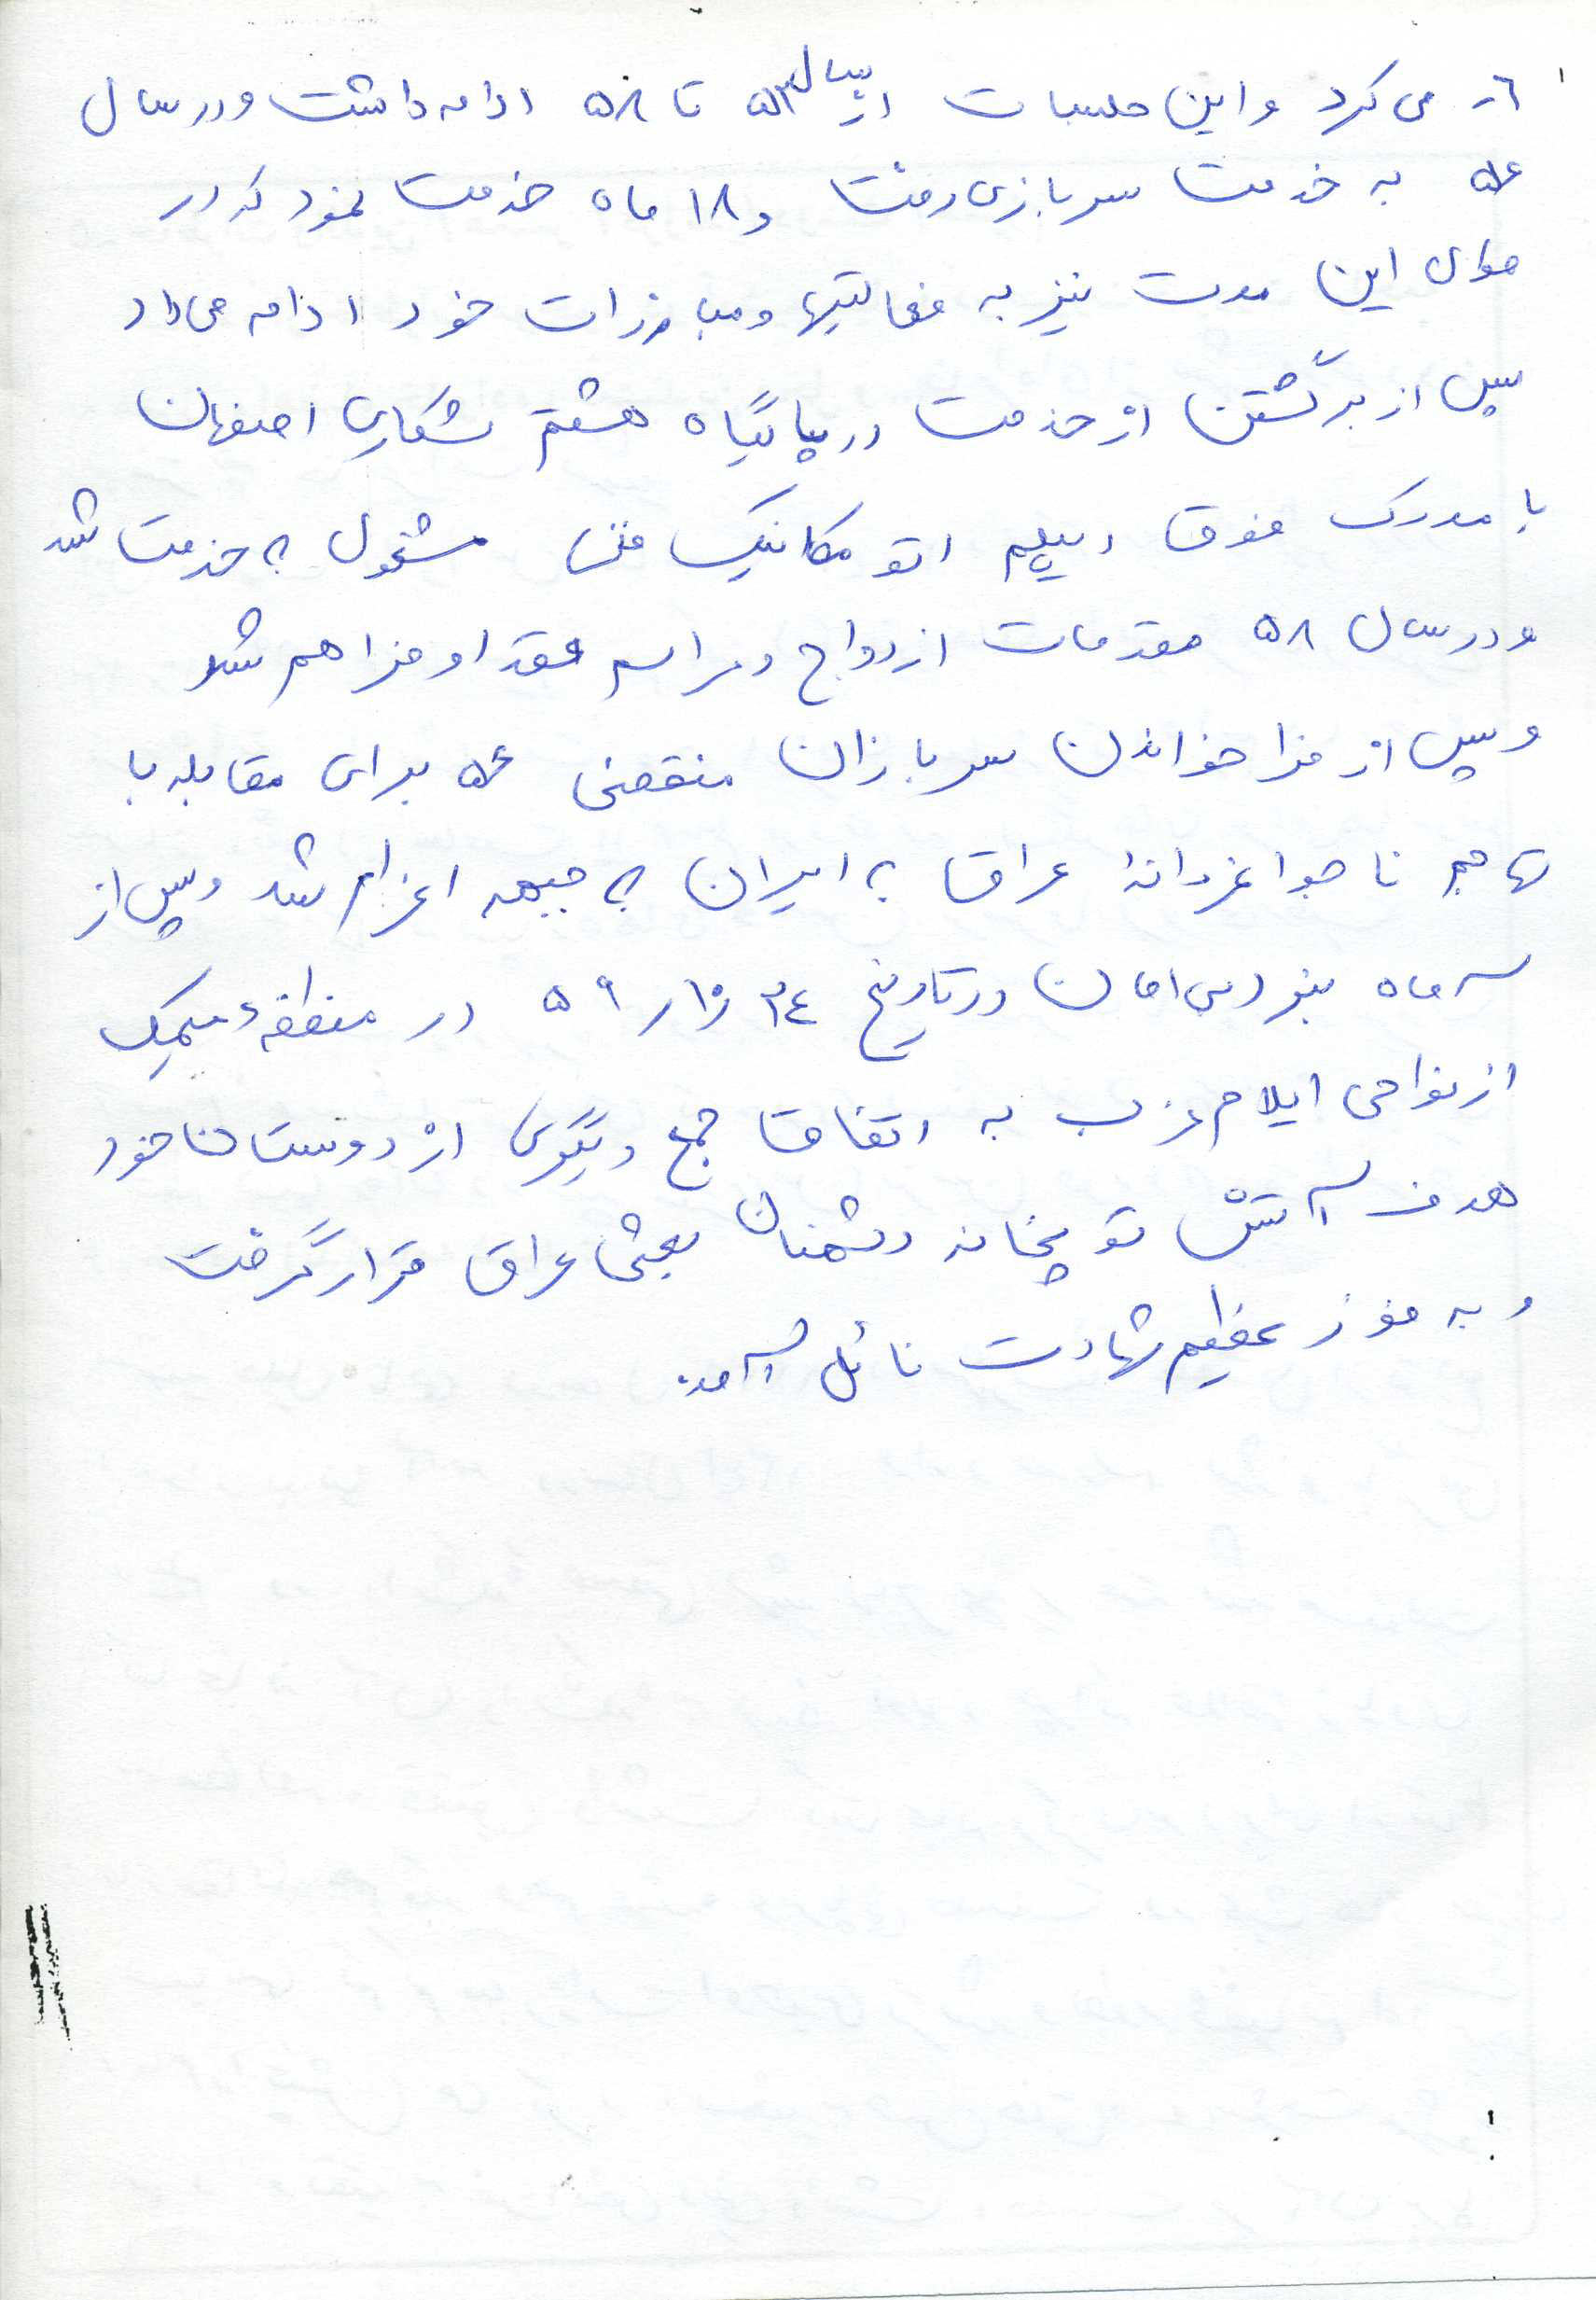 می‌کرد و این جلسات از سال ۵۳ تا ۵۸ ادامه داشت و در سال
۵۶ به خدمت سربازی رفت و ۱۸ ماه خدمت نمود که در
طول این مدت نیز به فعالتیها و مبارزات خود ادامه می داد
پس از برگشتن از خدمت در پایگاه هشتم شکاری اصفهان
با مدرک فوق دیپلم اتو مکانیک فنی مشغول به خدمت شد
و در سال ۵۸ مقدمات ازدواج و مراسم عقد او فراهم شد
و پس از فراخواندن سربازان منقضی ۵۶ برای مقابله با
تهاجم ناجوانمردانهٔ عراق به ایران به جبهه اعزام شد و پس از
سه ماه نبرد بی امان در تاریخ ۵۹ در منطقهء میمک
از نواحی ایلام غرب به اتفاق جمع دیگری از دوستان خود
هدف آتش توپخانه دشمنان بعثی عراق قرار گرفت
و به فوز عظیم شهادت نائل آمد.